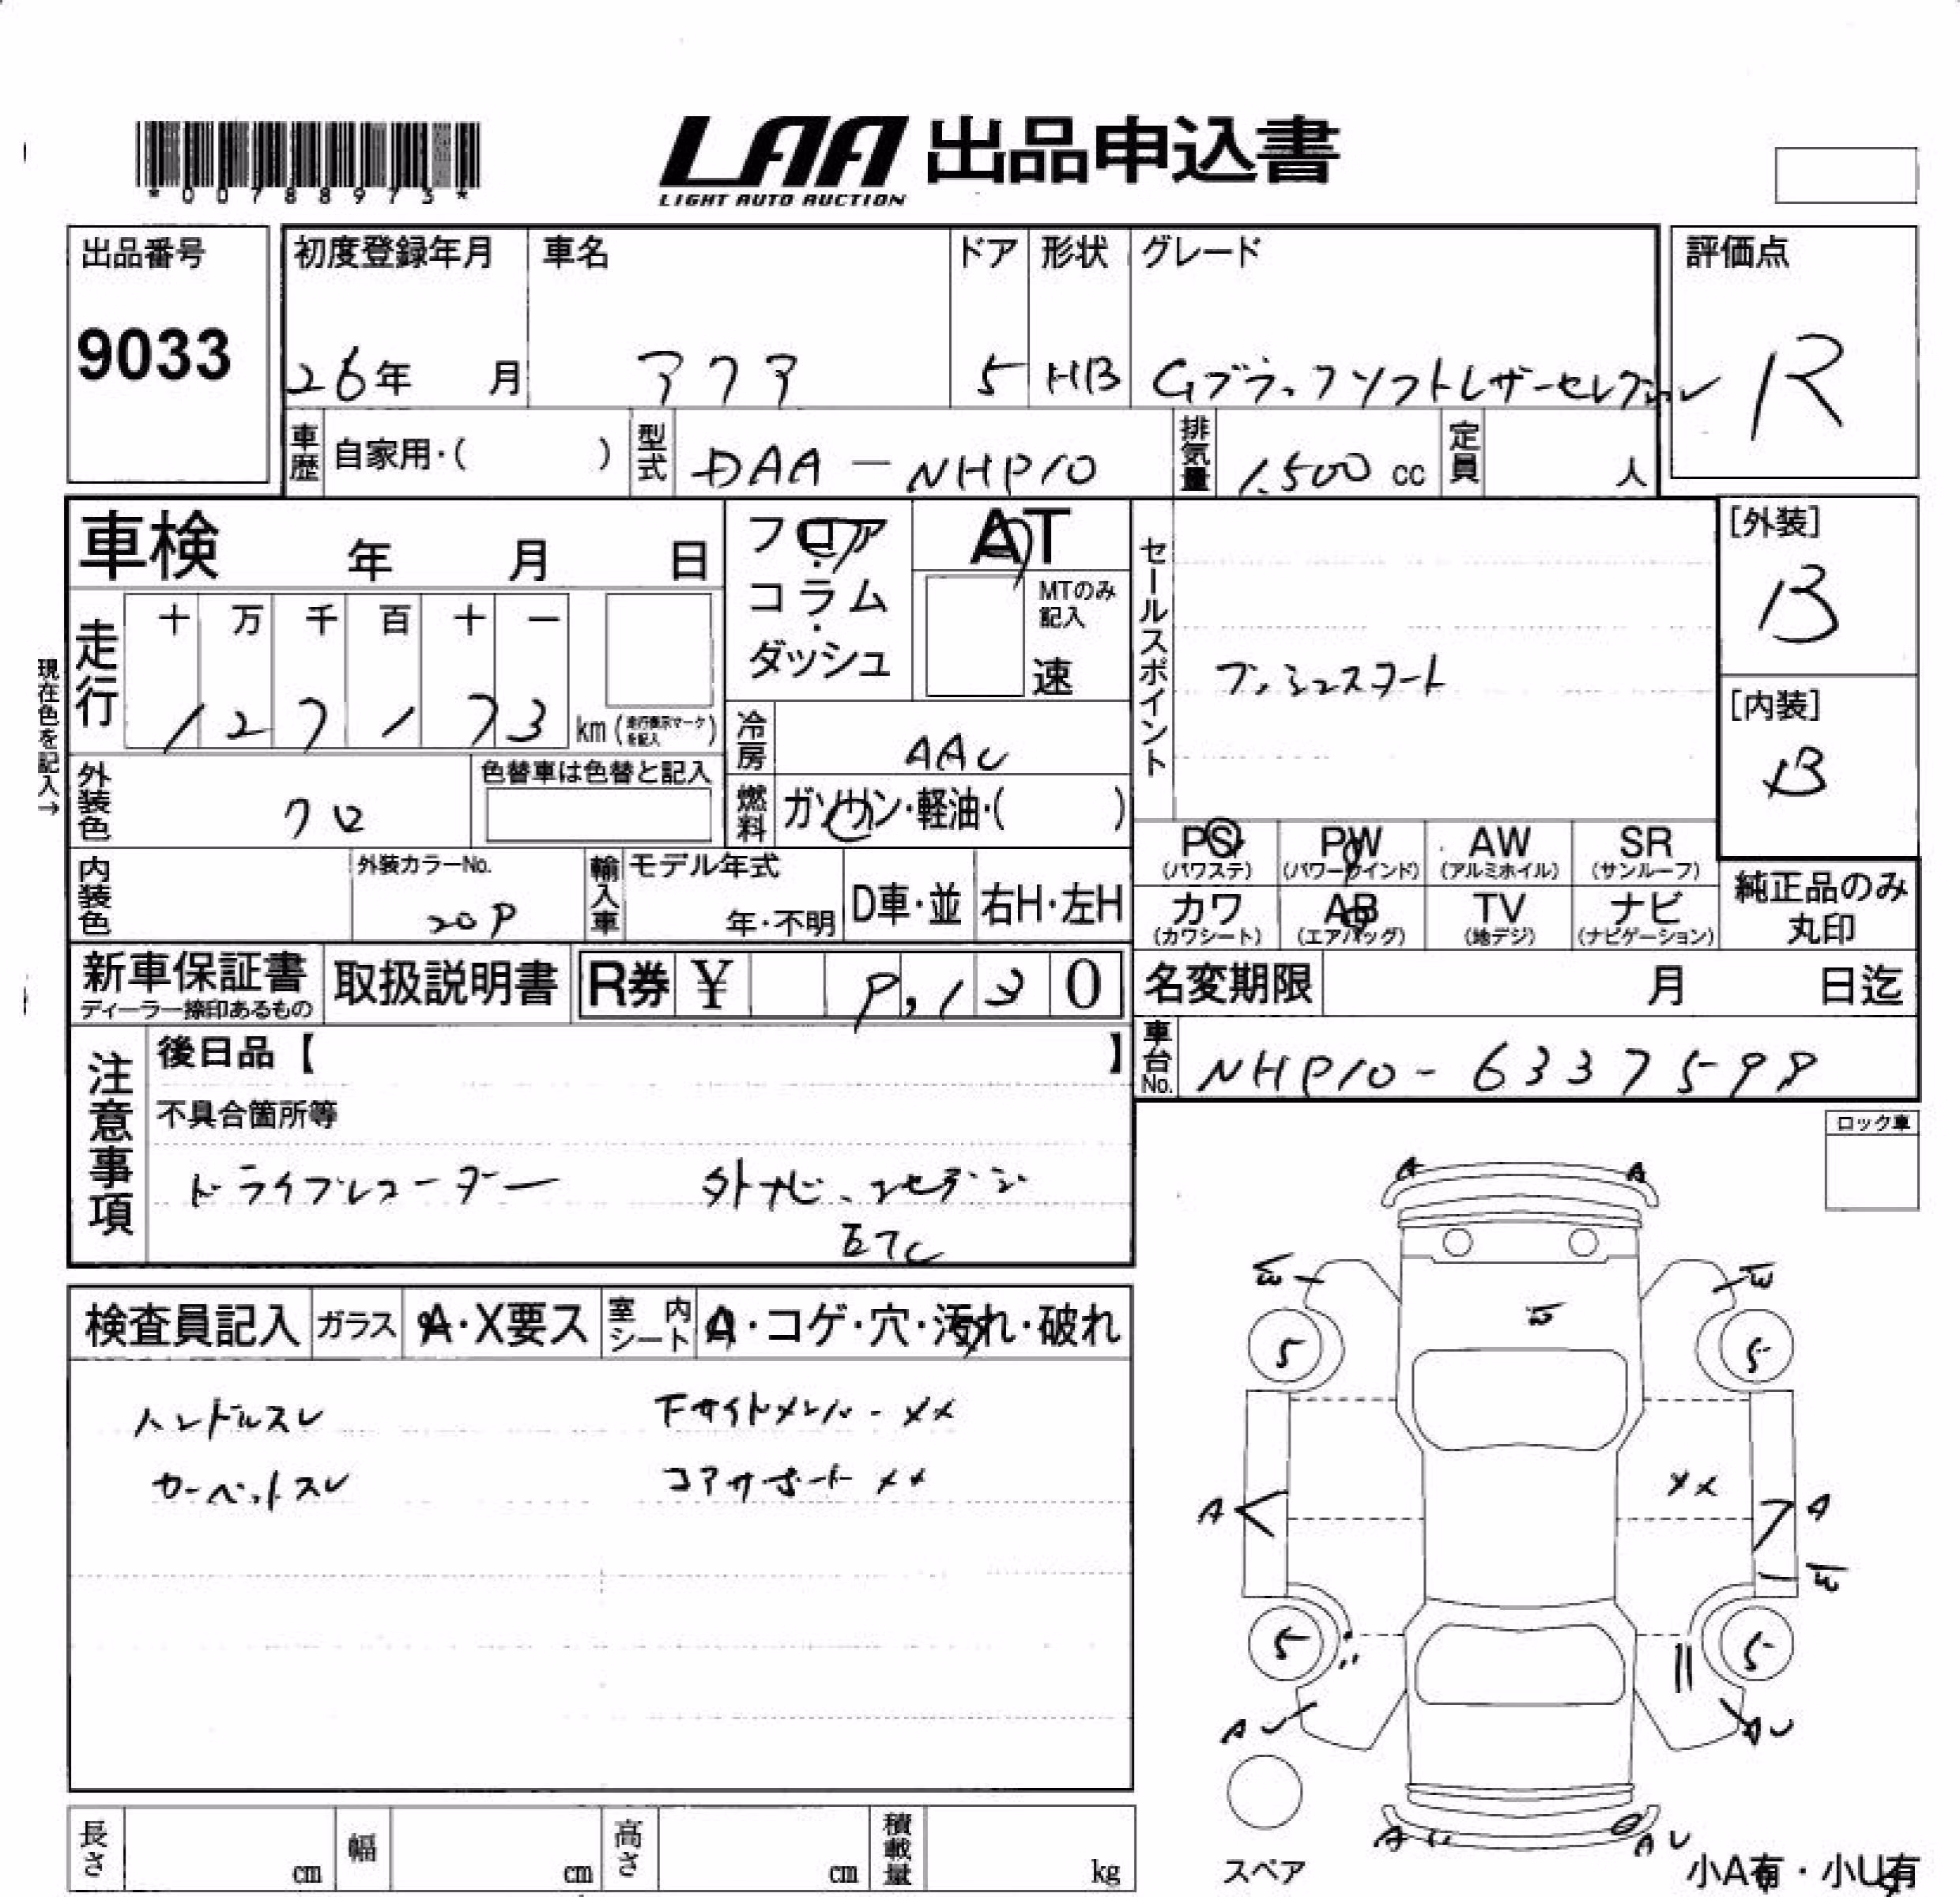 *00788975*
LAA 出品申込書
LIGHT AUTO AUCTION
出品番号 9033
初度登録年月 26年 月
車名 アクア
ドア 5
形状 HB
グレード Gブラックソフトレザーセレクション
評価点 R
車歴 自家用・( )
型式 DAA-NHP10
排気量 1,500 cc
定員 人
車検 年 月 日
フロア・コラム・ダッシュ
AT
MTのみ記入 速
セールスポイント
プッシュスタート
[外装] B
[内装] B
現在色を記入→
走行 十 万 千 百 十 一
127173 km (走行表示マークを記入)
冷房 AAC
外装色 クロ
色替車は色替と記入
燃料 ガソリン・軽油・( )
内装色
外装カラーNo. 209
輸入車 モデル年式 年・不明
D車・並 右H・左H
PS (パワステ) PW (パワーウインド) AW (アルミホイル) SR (サンルーフ)
カワ (カワシート) AB (エアバッグ) TV (地デジ) ナビ (ナビゲーション)
純正品のみ丸印
新車保証書 ディーラー捺印あるもの
取扱説明書
R券 ¥ 9,130
名変期限 月 日迄
車台No. NHP10-6337599
注意事項
後日品【 】
不具合箇所等
ドライブレコーダー 外ナビ、ワンセグ
ETC
ロック車
検査員記入 ガラス A・X要ス 室内シート A・コゲ・穴・汚れ・破れ
ハンドルスレ 下サイドメンバー XX
カーペットスレ コアサポート XX
A A
5 5
XX
A A
5 5
AU AU
A U AU
スペア
小A有・小U有
長さ cm 幅 cm 高さ cm 積載量 kg